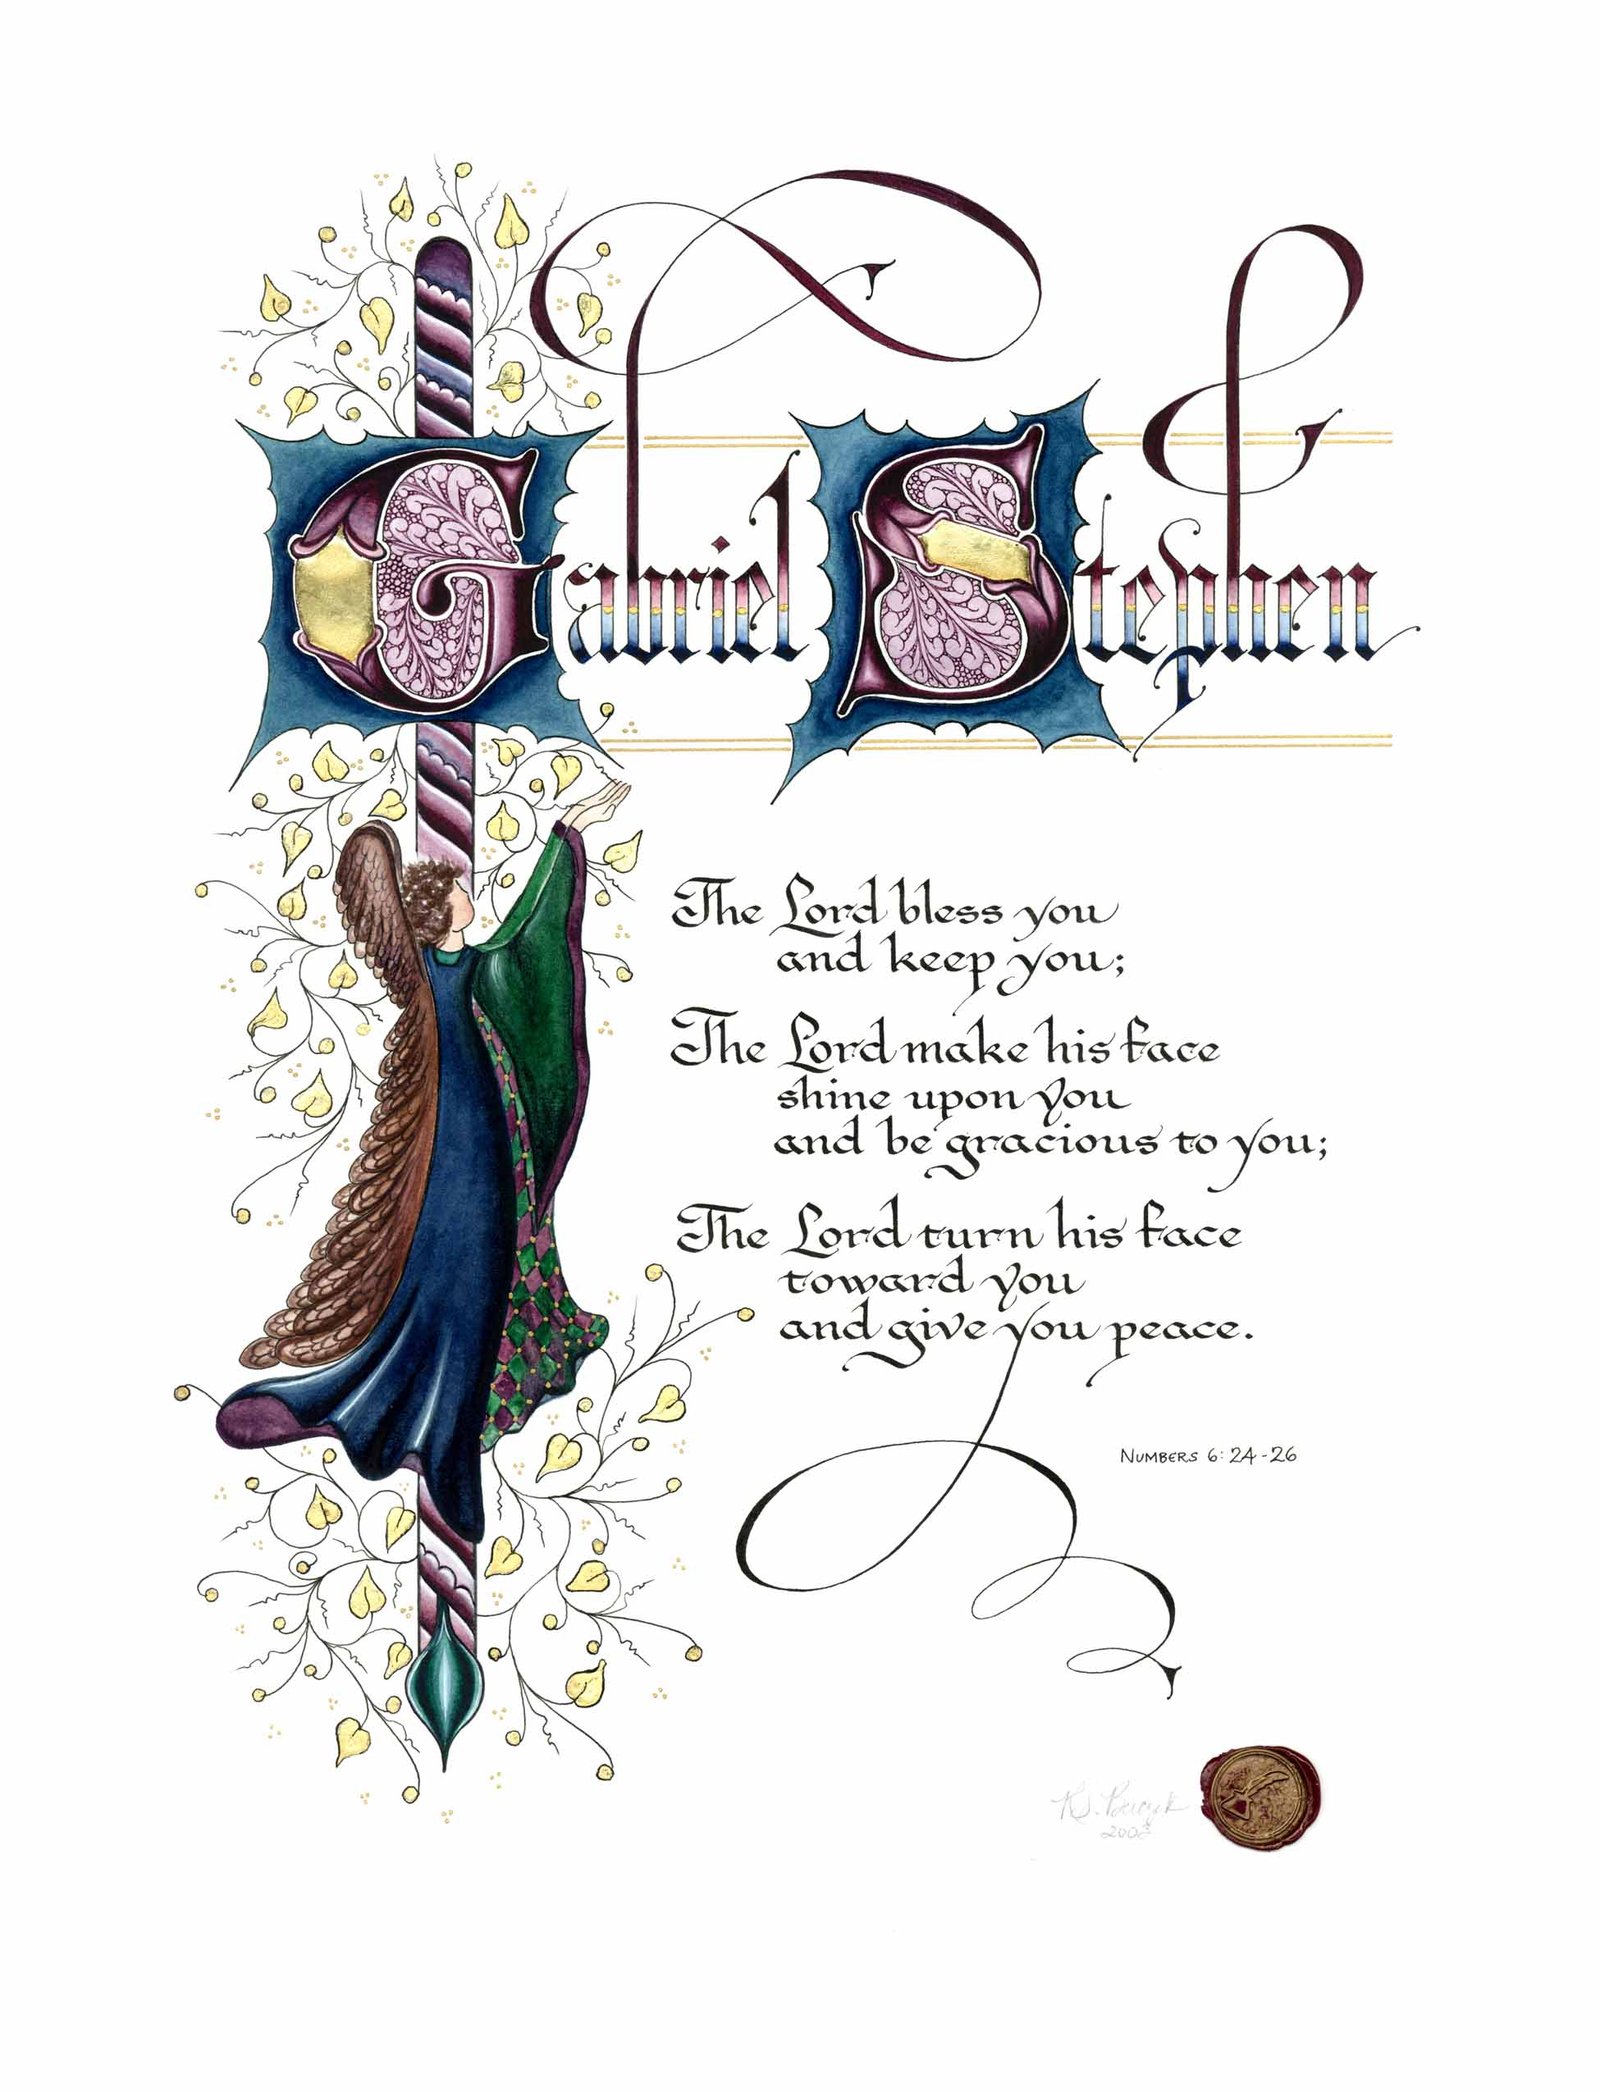 Gabriel Stephen
The Lord bless you
and keep you;
The Lord make his face
shine upon you
and be gracious to you;
The Lord turn his face
toward you
and give you peace.
Numbers 6:24-26